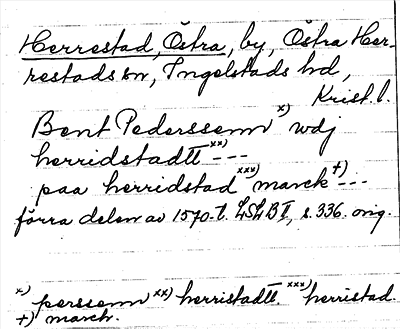 Herrestad, Östra, by, Östra Her-
restads sn, Ingelstads hd,
Krist. l.
Bent Pederssenn x) wdj
herridstadtt xx) ---
paa herridstad xxx) marck +) ---
förra delen av 1570-t. LSLB I, s. 336. orig.
x) perssenn xx) herristadtt. xxx) herristad.
+) march.